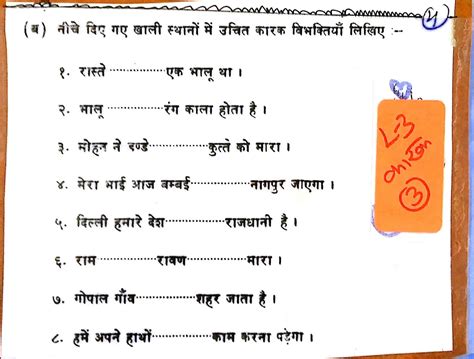 (ब) नीचे दिए गए खाली स्थानों में उचित कारक विभक्तियाँ लिखिए :-
१. रास्ते ............... एक भालू था ।
२. भालू ............... रंग काला होता है ।
३. मोहन ने दण्डे ............... कुत्ते को मारा ।
४. मेरा भाई आज बम्बई ............... नागपुर जाएगा ।
५. दिल्ली हमारे देश ............... राजधानी है ।
६. राम ............... रावण ............... मारा ।
७. गोपाल गाँव ............... शहर जाता है ।
८. हमें अपने हाथों ............... काम करना पड़ेगा ।
L-3
कारक
3